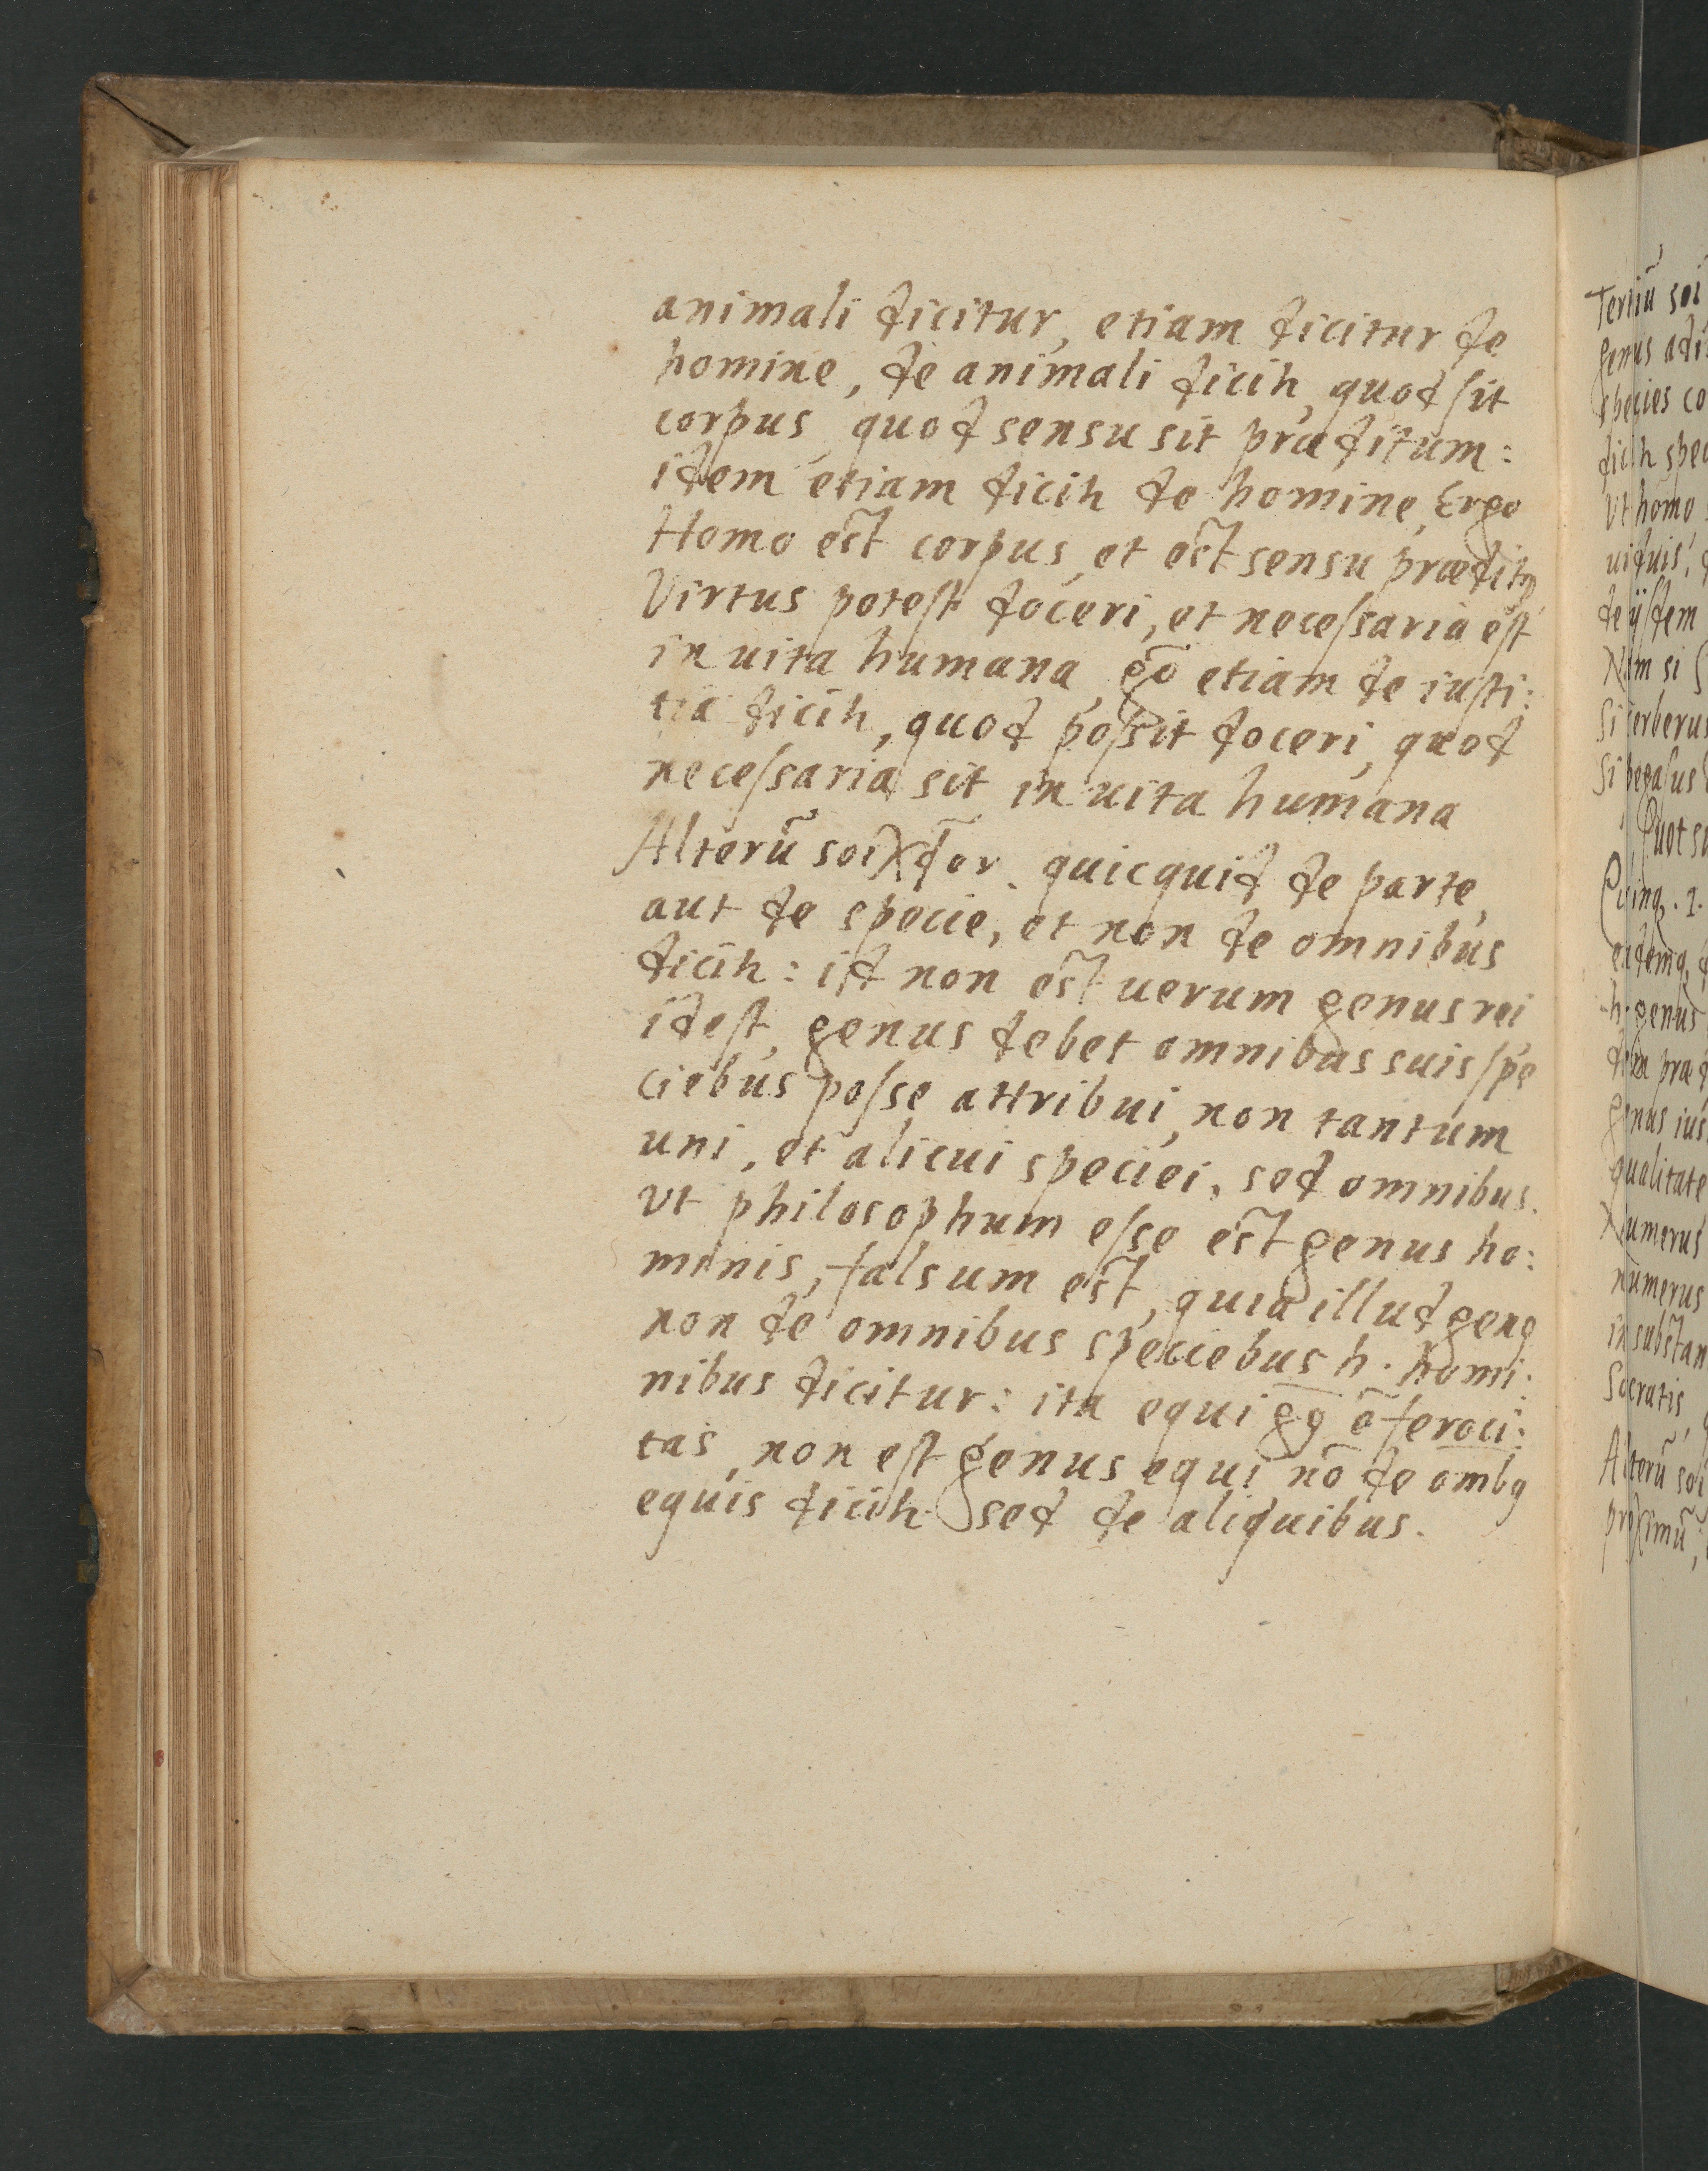 animali dicitur, etiam dicitur de
homine, de animali dicih, quod sit
corpus, quod sensu sit præditum:
idem etiam dicih de homine, Ergo
Homo est corpus, et est sensu prædit9
Virtus potest doceri, et necessaria est
in uita humana, gō etiam de iusti:
tia dicih, quod possit doceri, quod
necessaria sit in uita humana
Alterū quicquid de parte,
aut de specie, et non de omnibus
dicih: id non est uerum genus rei
idest, genus debet omnibus suis spe
ciebus posse attribui, non tantum
uni, et alicui speciei, sed omnibus.
Vt philosophum esse est genus ho:
minis, falsum est, quia illud gen9
non de omnibus speciebus h. homi:
nibus dicitur: ita equi ē feroci:
tas, non est genus equi nō de omb9
equis dicih sed de aliquibus.
Tertiū soi
genus
species co
dicih spec
Vt homo
uiduis,
de ijsdem
Nam si
Si cerberus
Si pegasus
Quot s
genus
qualitate
Numerus
numerus
in substan
Socratis,
Alterū soi
proximū,